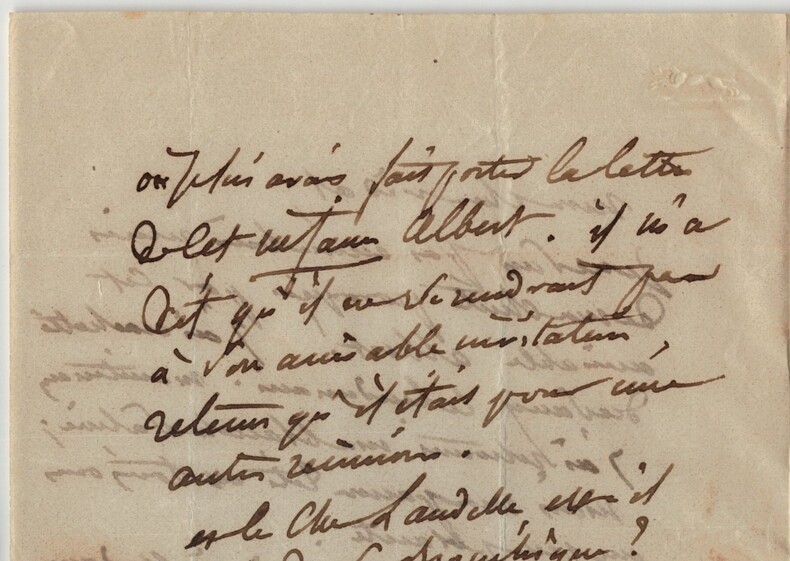 où j'étais avais fait porter la lettre
de cet infame Albert. il m'a
dit qu'il ne se rendrait pas
à ton aimable invitation,
retenu qu'il était pour une
autre réunion.
et le Cher Landelle, est-il
?